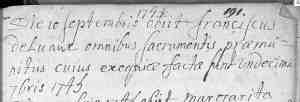 1745 190.
Die 10 septembris obiit franciscus
deluane omnibus sacramentis præmu
nitus cuius exequiæ factæ sunt undecima
7bris 1745
obiit margarita